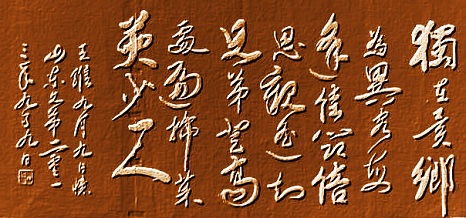 獨在異鄉
為異客每
逢佳節倍
思親遙知
兄弟登高
處遍插茱
萸少一人
王維九月九日憶
山東兄弟二零一
三年九月九日